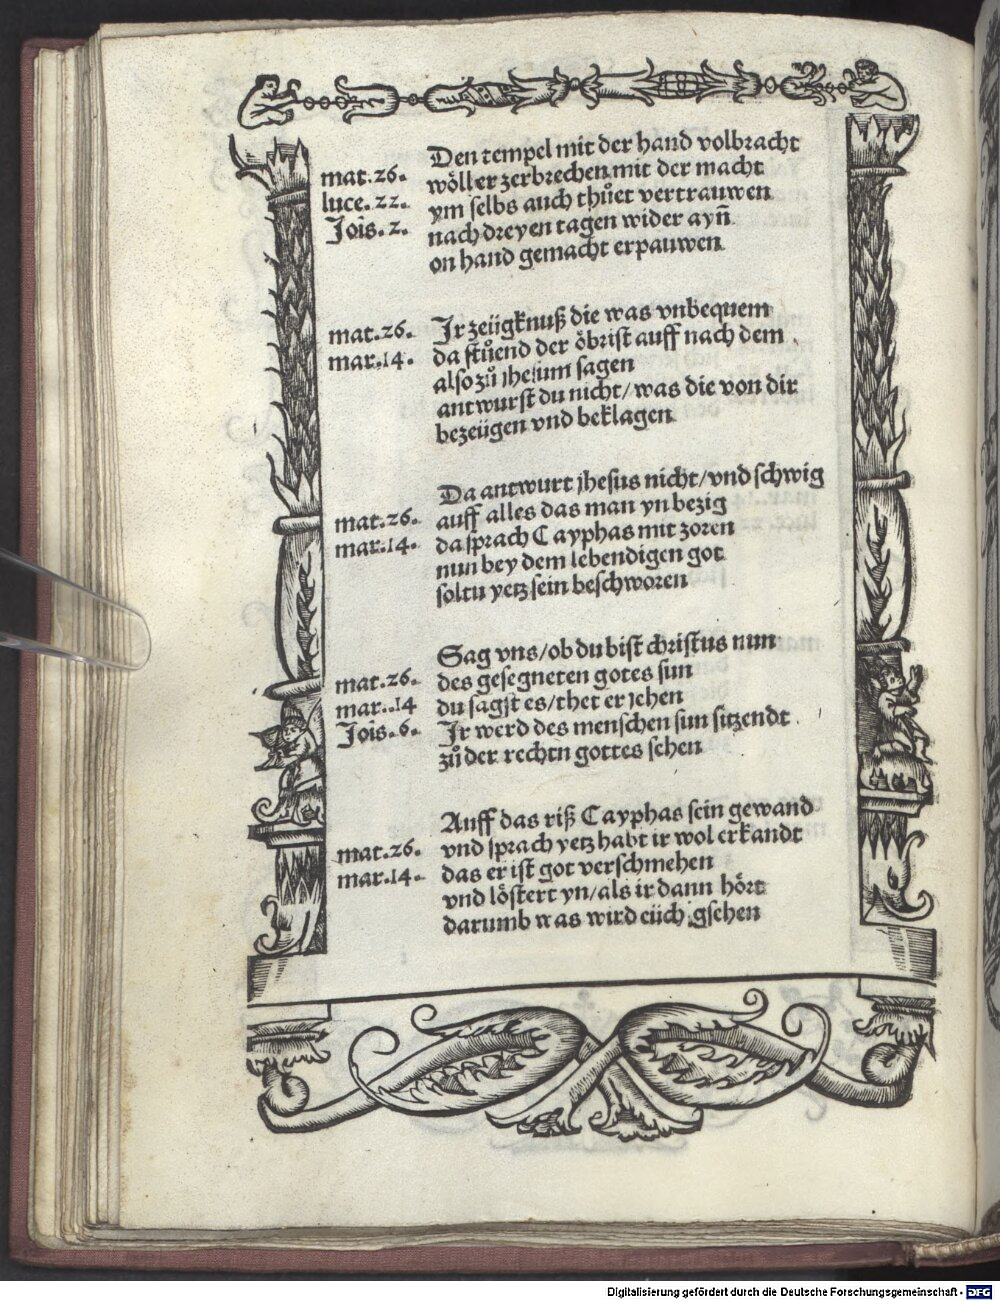 Den tempel mit der hand volbracht
mat.26. wöll er zerbrechen mit der macht
luce.22. ym selbs auch thůet vertrauwen
Jois.2. nach dreyen tagen wider ayn̄
on hand gemacht erpauwen
Jr zeügknuß die was vnbequem
mat.26. da stůend der öbrist auff nach dem
mar.14. also zů jhesum sagen
antwurst du nicht/was die von dir
bezeügen vnd beklagen
Da antwurt jhesus nicht/vnd schwig
mat.26. auff alles das man yn bezig
mar.14. da sprach Cayphas mit zoren
nun bey dem lebendigen got
soltu yetz sein beschworen
Sag vns/ob du bist christus nun
mat.26. des gesegneten gotes sun
mar..14 du sagst es/thet er jehen
Jois.6. Jr werd des menschen sun sitzendt
zů der rechtn gottes sehen
Auff das riß Cayphas sein gewand
mat.26. vnd sprach yetz habt ir wol erkandt
mar.14. das er ist got verschmehen
vnd löstert yn/als ir dann hört
darumb was wird eüch gsehen
Digitalisierung gefördert durch die Deutsche Forschungsgemeinschaft - DFG